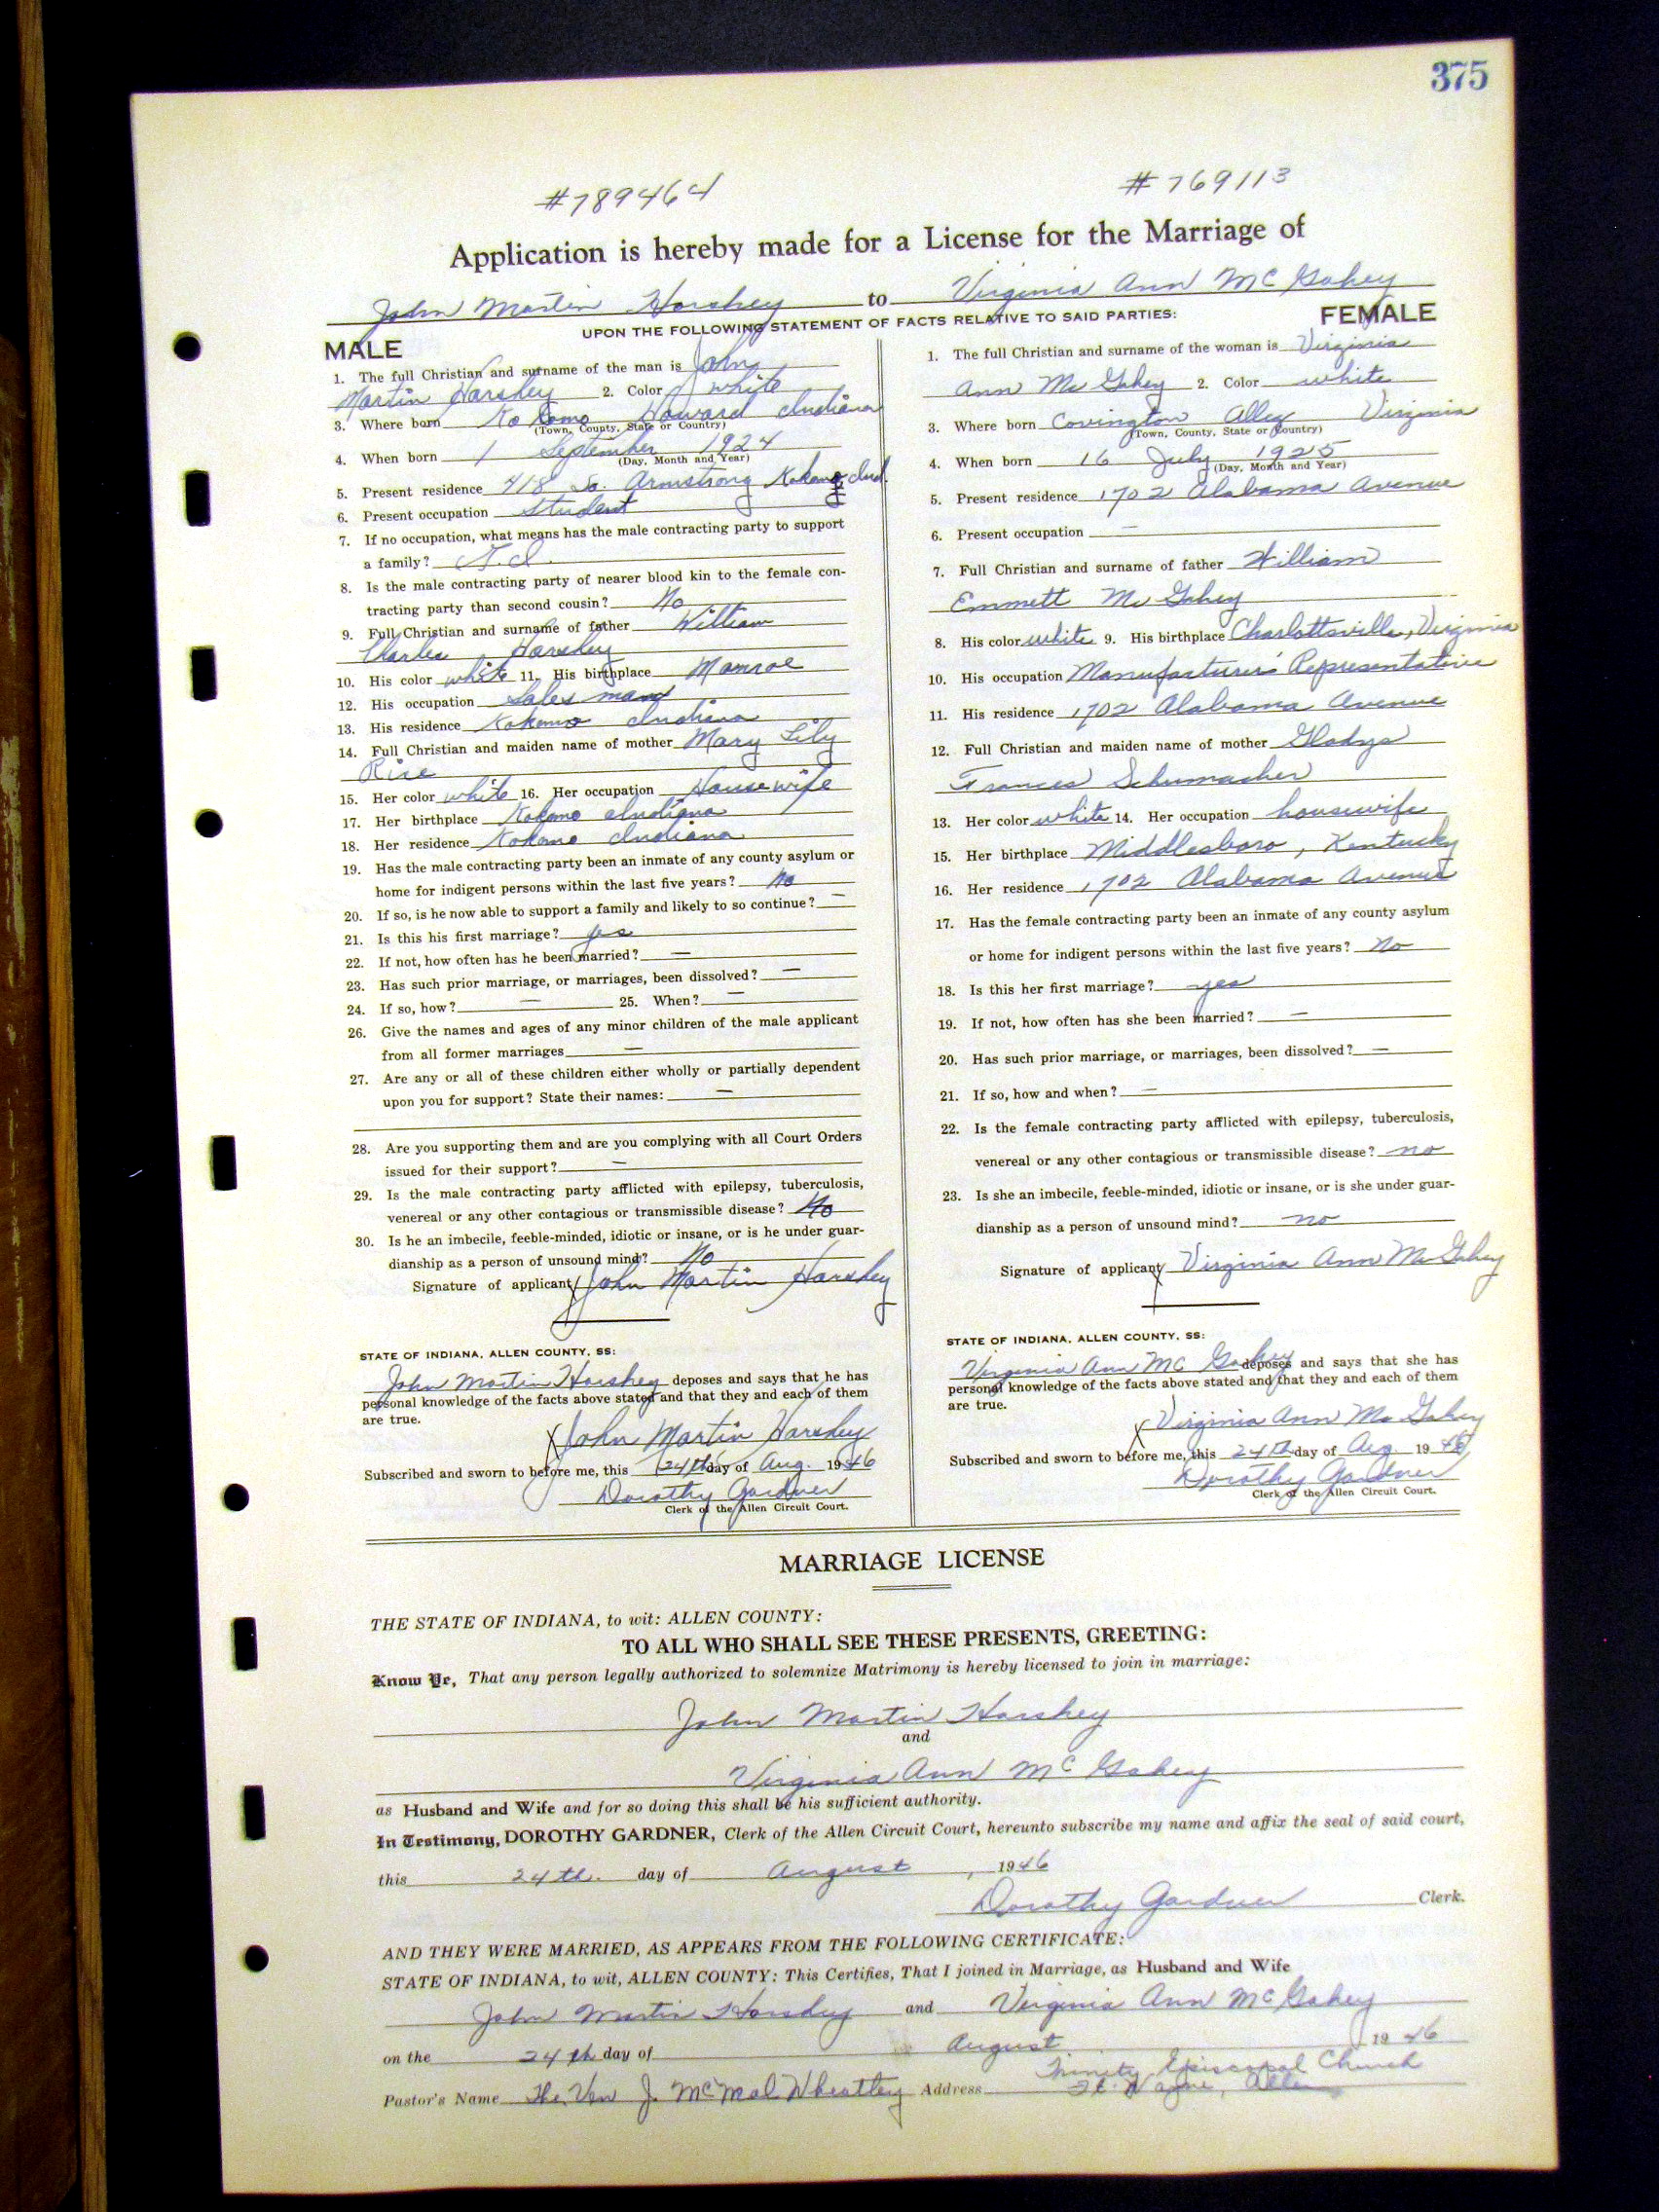 375
#789464 #769113
Application is hereby made for a License for the Marriage of
John Martin Harshey to Virginia Ann McGahey
UPON THE FOLLOWING STATEMENT OF FACTS RELATIVE TO SAID PARTIES:
MALE
1. The full Christian and surname of the man is John
Martin Harshey 2. Color white
3. Where born Kokomo Howard Indiana
(Town, County, State or Country)
4. When born 1 September 1924
(Day, Month and Year)
5. Present residence 418 So. Armstrong Kokomo, Ind.
6. Present occupation Student
7. If no occupation, what means has the male contracting party to support
a family? G.I.
8. Is the male contracting party of nearer blood kin to the female con-
tracting party than second cousin? No
9. Full Christian and surname of father William
Charles Harshey
10. His color white 11. His birthplace Monroe
12. His occupation Salesman
13. His residence Kokomo Indiana
14. Full Christian and maiden name of mother Mary Lily
Rise
15. Her color white 16. Her occupation Housewife
17. Her birthplace Kokomo Indiana
18. Her residence Kokomo Indiana
19. Has the male contracting party been an inmate of any county asylum or
home for indigent persons within the last five years? No
20. If so, is he now able to support a family and likely to so continue? —
21. Is this his first marriage? yes
22. If not, how often has he been married? —
23. Has such prior marriage, or marriages, been dissolved? —
24. If so, how? — 25. When? —
26. Give the names and ages of any minor children of the male applicant
from all former marriages —
27. Are any or all of these children either wholly or partially dependent
upon you for support? State their names: —
28. Are you supporting them and are you complying with all Court Orders
issued for their support? —
29. Is the male contracting party afflicted with epilepsy, tuberculosis,
venereal or any other contagious or transmissible disease? No
30. Is he an imbecile, feeble-minded, idiotic or insane, or is he under guar-
dianship as a person of unsound mind? No
Signature of applicant John Martin Harshey
STATE OF INDIANA, ALLEN COUNTY, SS:
John Martin Harshey deposes and says that he has
personal knowledge of the facts above stated and that they and each of them
are true.
X John Martin Harshey
Subscribed and sworn to before me, this 24th day of Aug. 1946
Dorothy Gardner
Clerk of the Allen Circuit Court.
FEMALE
1. The full Christian and surname of the woman is Virginia
Ann McGahey 2. Color white
3. Where born Covington Alleg Virginia
(Town, County, State or Country)
4. When born 16 July 1925
(Day, Month and Year)
5. Present residence 1702 Alabama Avenue
6. Present occupation —
7. Full Christian and surname of father William
Emmett McGahey
8. His color white 9. His birthplace Charlottsville, Virginia
10. His occupation Manufacturers' Representative
11. His residence 1702 Alabama Avenue
12. Full Christian and maiden name of mother Gladys
Frances Schumacher
13. Her color white 14. Her occupation housewife
15. Her birthplace Middlesboro, Kentucky
16. Her residence 1702 Alabama Avenue
17. Has the female contracting party been an inmate of any county asylum
or home for indigent persons within the last five years? No
18. Is this her first marriage? yes
19. If not, how often has she been married? —
20. Has such prior marriage, or marriages, been dissolved? —
21. If so, how and when? —
22. Is the female contracting party afflicted with epilepsy, tuberculosis,
venereal or any other contagious or transmissible disease? no
23. Is she an imbecile, feeble-minded, idiotic or insane, or is she under guar-
dianship as a person of unsound mind? no
Signature of applicant Virginia Ann McGahey
STATE OF INDIANA, ALLEN COUNTY, SS:
Virginia Ann McGahey deposes and says that she has
personal knowledge of the facts above stated and that they and each of them
are true.
X Virginia Ann McGahey
Subscribed and sworn to before me, this 24th day of Aug. 1946
Dorothy Gardner
Clerk of the Allen Circuit Court.
MARRIAGE LICENSE
THE STATE OF INDIANA, to wit: ALLEN COUNTY:
TO ALL WHO SHALL SEE THESE PRESENTS, GREETING:
Know Ye, That any person legally authorized to solemnize Matrimony is hereby licensed to join in marriage:
John Martin Harshey
and
Virginia Ann McGahey
as Husband and Wife and for so doing this shall be his sufficient authority.
In Testimony, DOROTHY GARDNER, Clerk of the Allen Circuit Court, hereunto subscribe my name and affix the seal of said court,
this 24th. day of August, 1946
Dorothy Gardner Clerk.
AND THEY WERE MARRIED, AS APPEARS FROM THE FOLLOWING CERTIFICATE:
STATE OF INDIANA, to wit, ALLEN COUNTY: This Certifies, That I joined in Marriage, as Husband and Wife
John Martin Harshey and Virginia Ann McGahey
on the 24th day of August 1946
Trinity Episcopal Church
Pastor's Name The Ven J. McNeal Wheatley Address Ft. Wayne, Allen